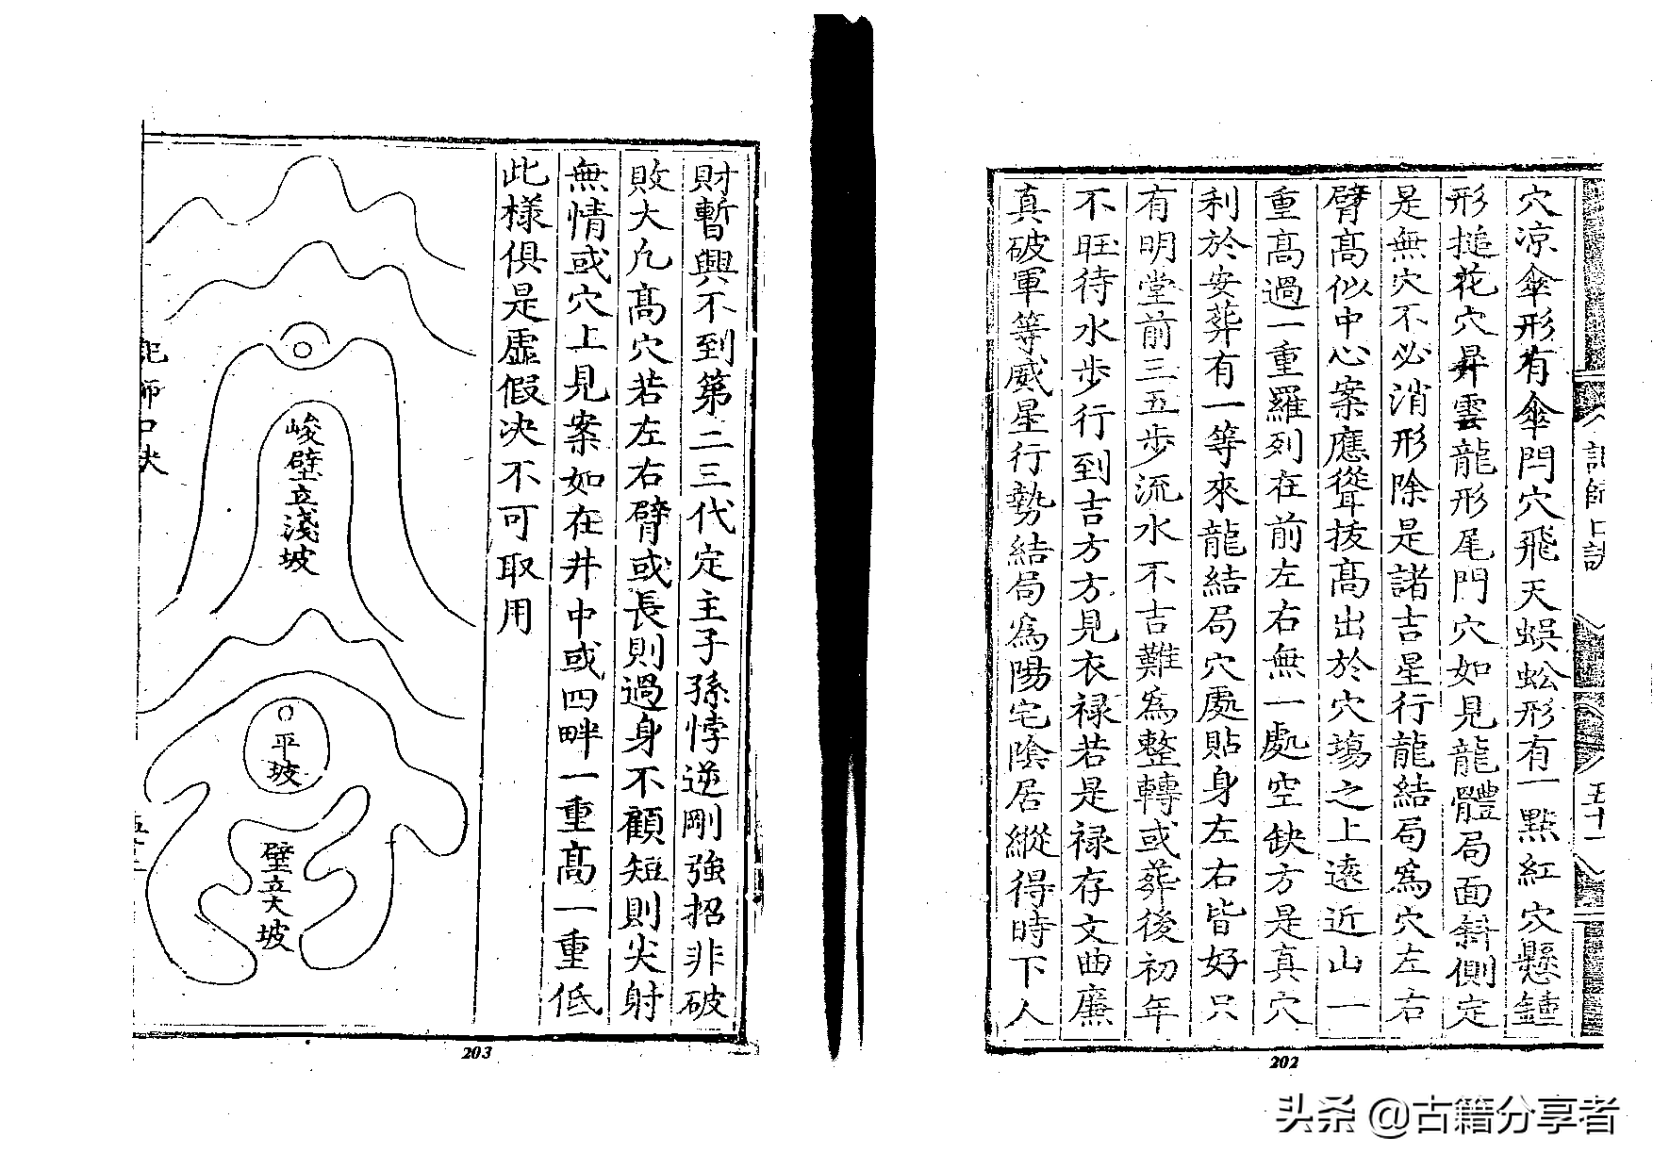 穴凉傘形有傘閂穴飛天蜈蚣形有一點紅穴懸鐘
形搥花穴昇雲龍形尾門穴如見龍體局面斜側定
是無穴不必消形除是諸吉星行龍結局爲穴左右
臂高似中心案應聳拔高出於穴塲之上遠近山一
重高過一重羅列在前左右無一處空缺方是真穴
利於安葬有一等來龍結局穴處貼身左右皆好只
有明堂前三五步流水不吉難爲整轉或葬後初年
不旺待水步行到吉方方見衣禄若是禄存文曲廉
真破軍等威星行勢結局爲陽宅陰居縱得時下人
五十一
202
財暫興不到第二三代定主子孫悖逆剛強招非破
敗大凢高穴若左右臂或長則過身不顧短則尖射
無情或穴上見案如在井中或四畔一重高一重低
此樣俱是虛假决不可取用
峻壁立淺坡
平坡
壁立大坡
203
头条 @古籍分享者